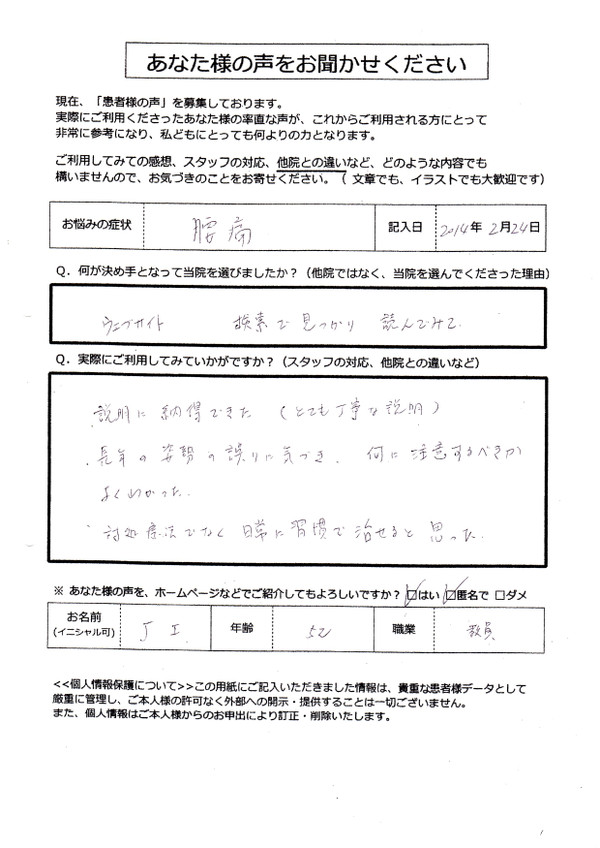 あなた様の声をお聞かせください
現在、「患者様の声」を募集しております。
実際にご利用くださったあなた様の率直な声が、これからご利用される方にとって
非常に参考になり、私どもにとっても何よりの力となります。
ご利用してみての感想、スタッフの対応、他院との違いなど、どのような内容でも
構いませんので、お気づきのことをお寄せください。（ 文章でも、イラストでも大歓迎です）
お悩みの症状 腰痛 記入日 2014年 2月24日
Q．何が決め手となって当院を選びましたか？（他院ではなく、当院を選んでくださった理由）
ウェブサイト 検索で見つかり 読んでみて
Q．実際にご利用してみていかがですか？（スタッフの対応、他院との違いなど）
・説明に納得できた （とても丁寧な説明）
・長年の姿勢の誤りに気づき、何に注意するべきか
よくわかった。
・対処療法でなく日常に習慣で治せると思った。
※ あなた様の声を、ホームページなどでご紹介してもよろしいですか？ ☑はい ☑匿名で □ダメ
お名前 J I 年齢 52 職業 教員
(イニシャル可)
<<個人情報保護について>>この用紙にご記入いただきました情報は、貴重な患者様データとして
厳重に管理し、ご本人様の許可なく外部への開示・提供することは一切ございません。
また、個人情報はご本人様からのお申出により訂正・削除いたします。